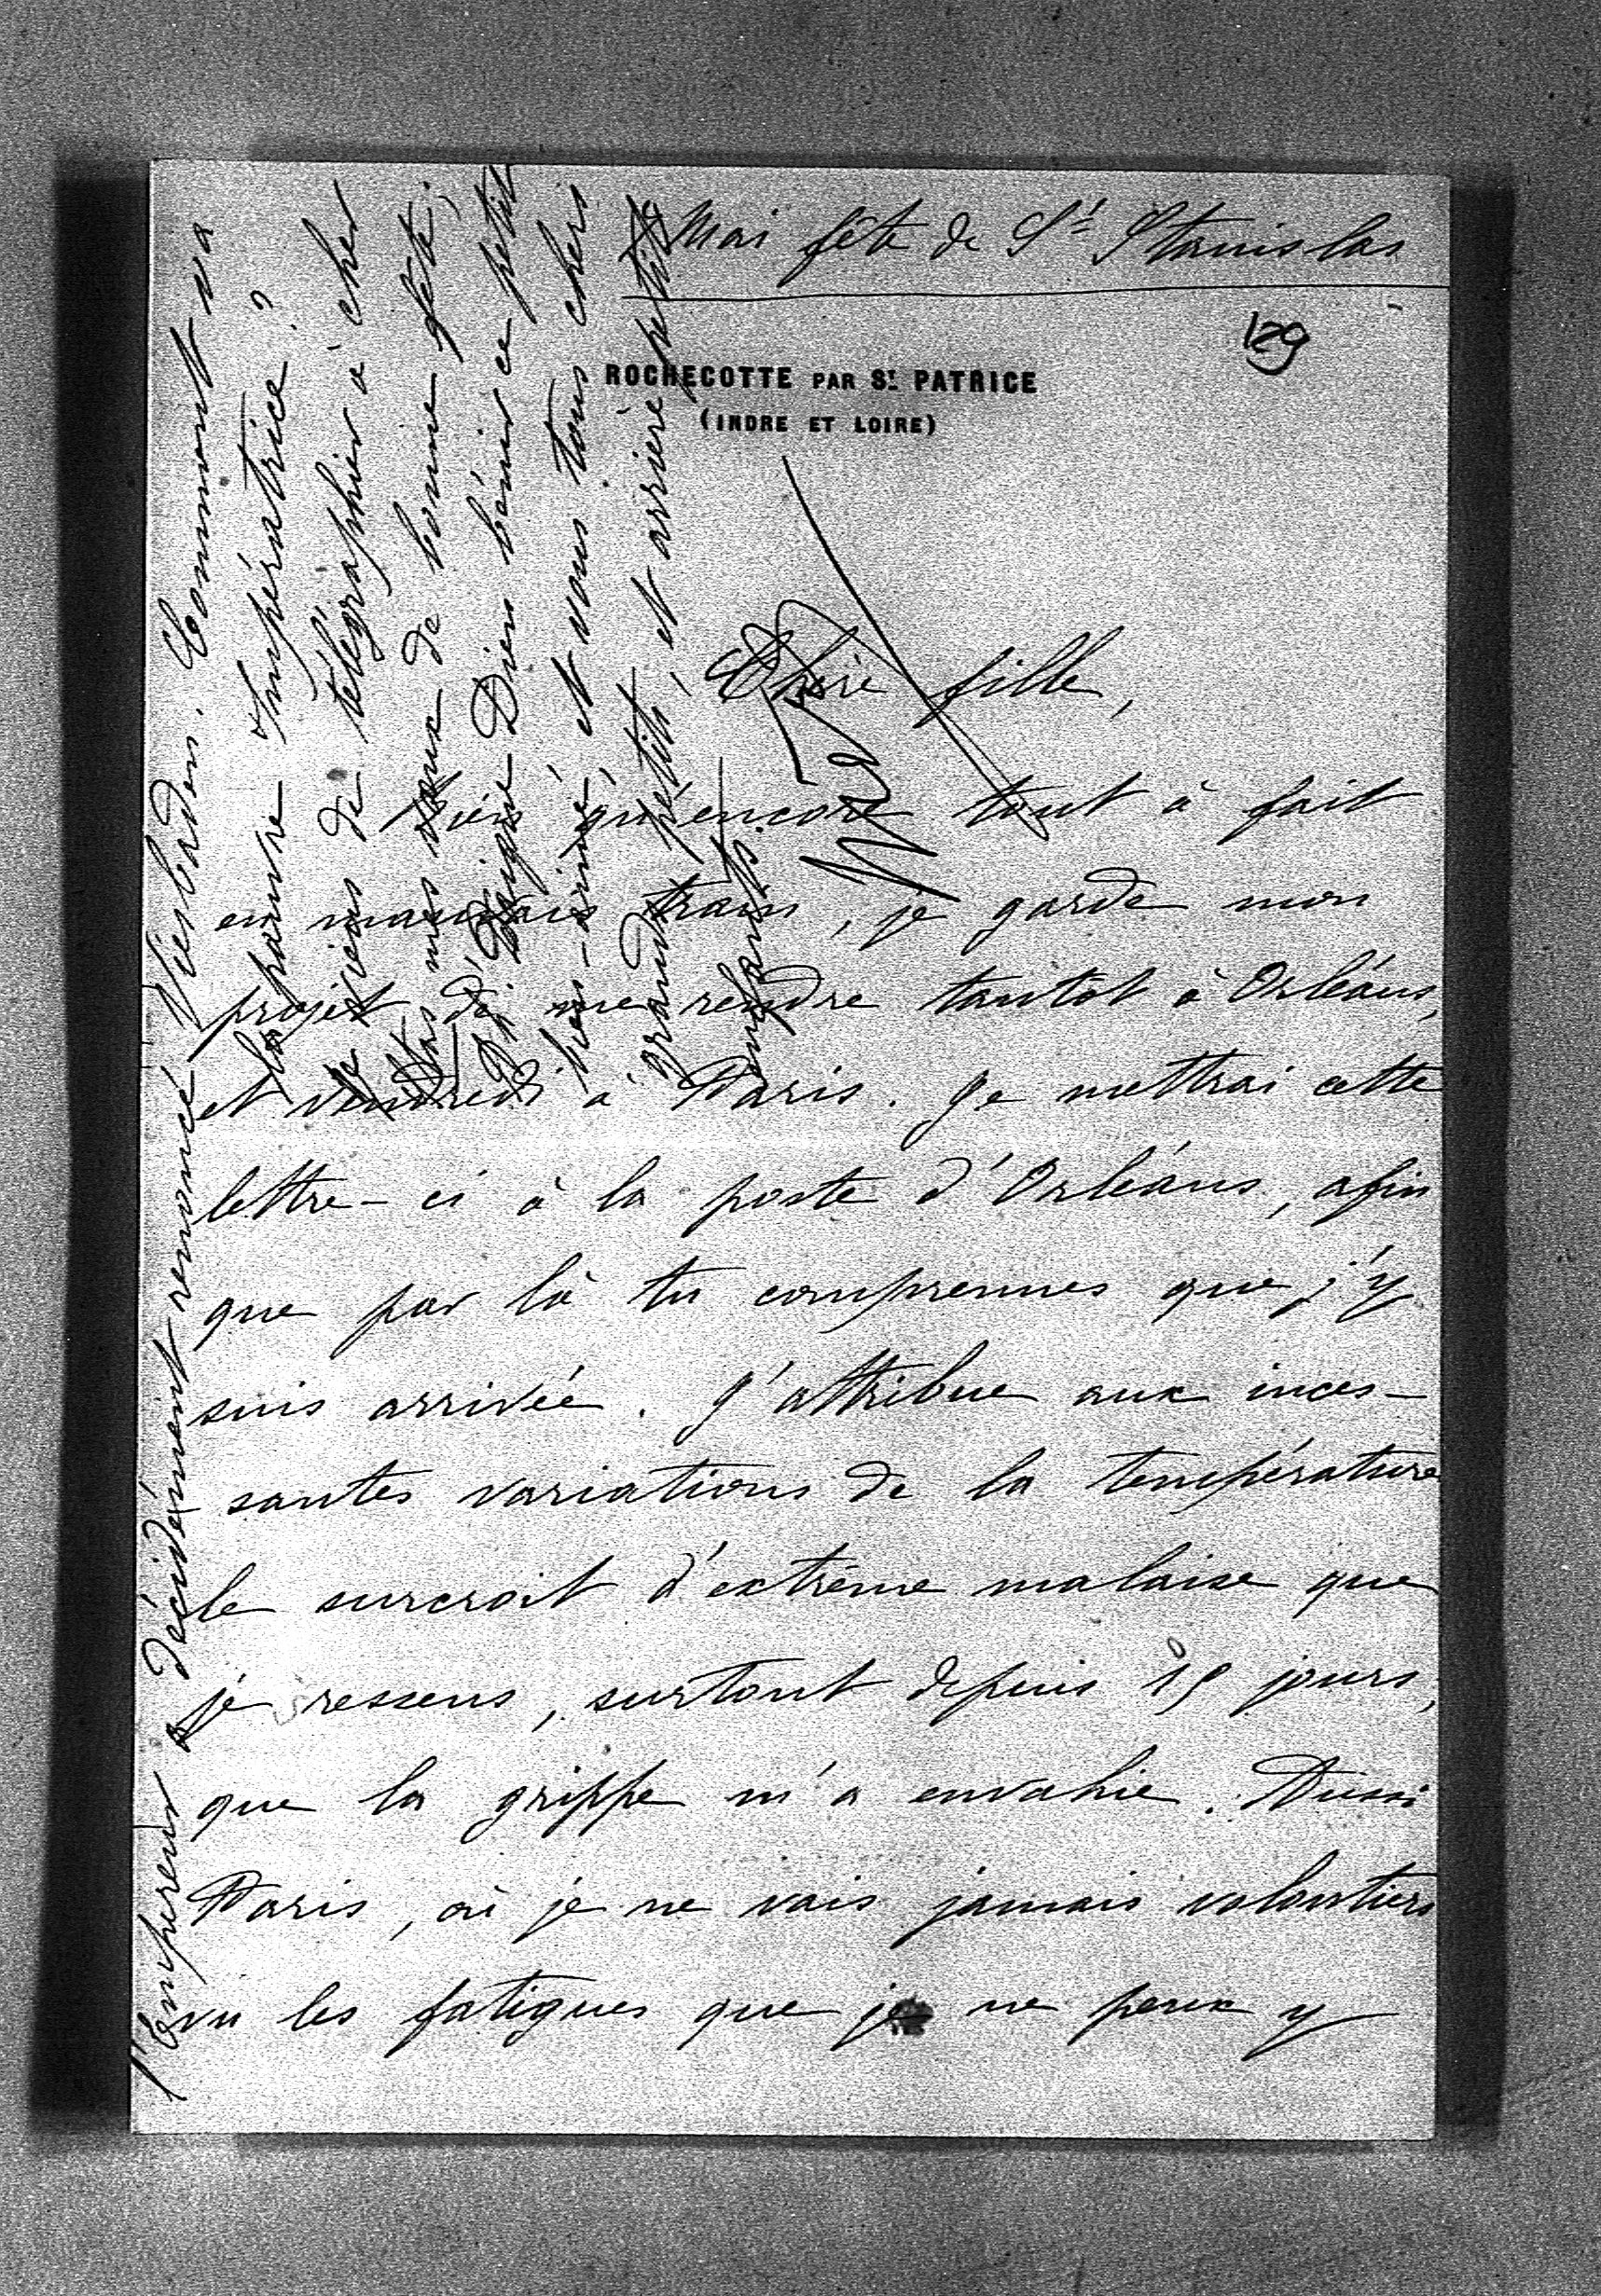 Mai fête de St Stanislas
129
ROCHECOTTE PAR ST PATRICE
(INDRE ET LOIRE)
Chère fille,
qu'encore tout à fait
en mauvais train, je garde mon
projet de me rendre tantôt à Orléans,
et vendredi à Paris. Je mettrai cette
lettre-ci à la poste d'Orléans, afin
que par là tu comprennes que j'y
suis arrivée. J'attribue aux inces-
santes variations de la température
le surcroit d'extrême malaise que
je ressens, surtout depuis jours,
que la grippe m'a envahie. Aussi
Paris, où je ne vais jamais volontiers
vu les fatigues que je ne peux y
l'Empereur a décidément renoncé à Viesbaden. Comment va
la pauvre Impératrice?
Je viens de télégraphier à cher
mes vœux de bonne fête;
Dieu bénir ce petit
bien-aimé, et vous tous chéris
grands, petits, et arrière petits
enfants.